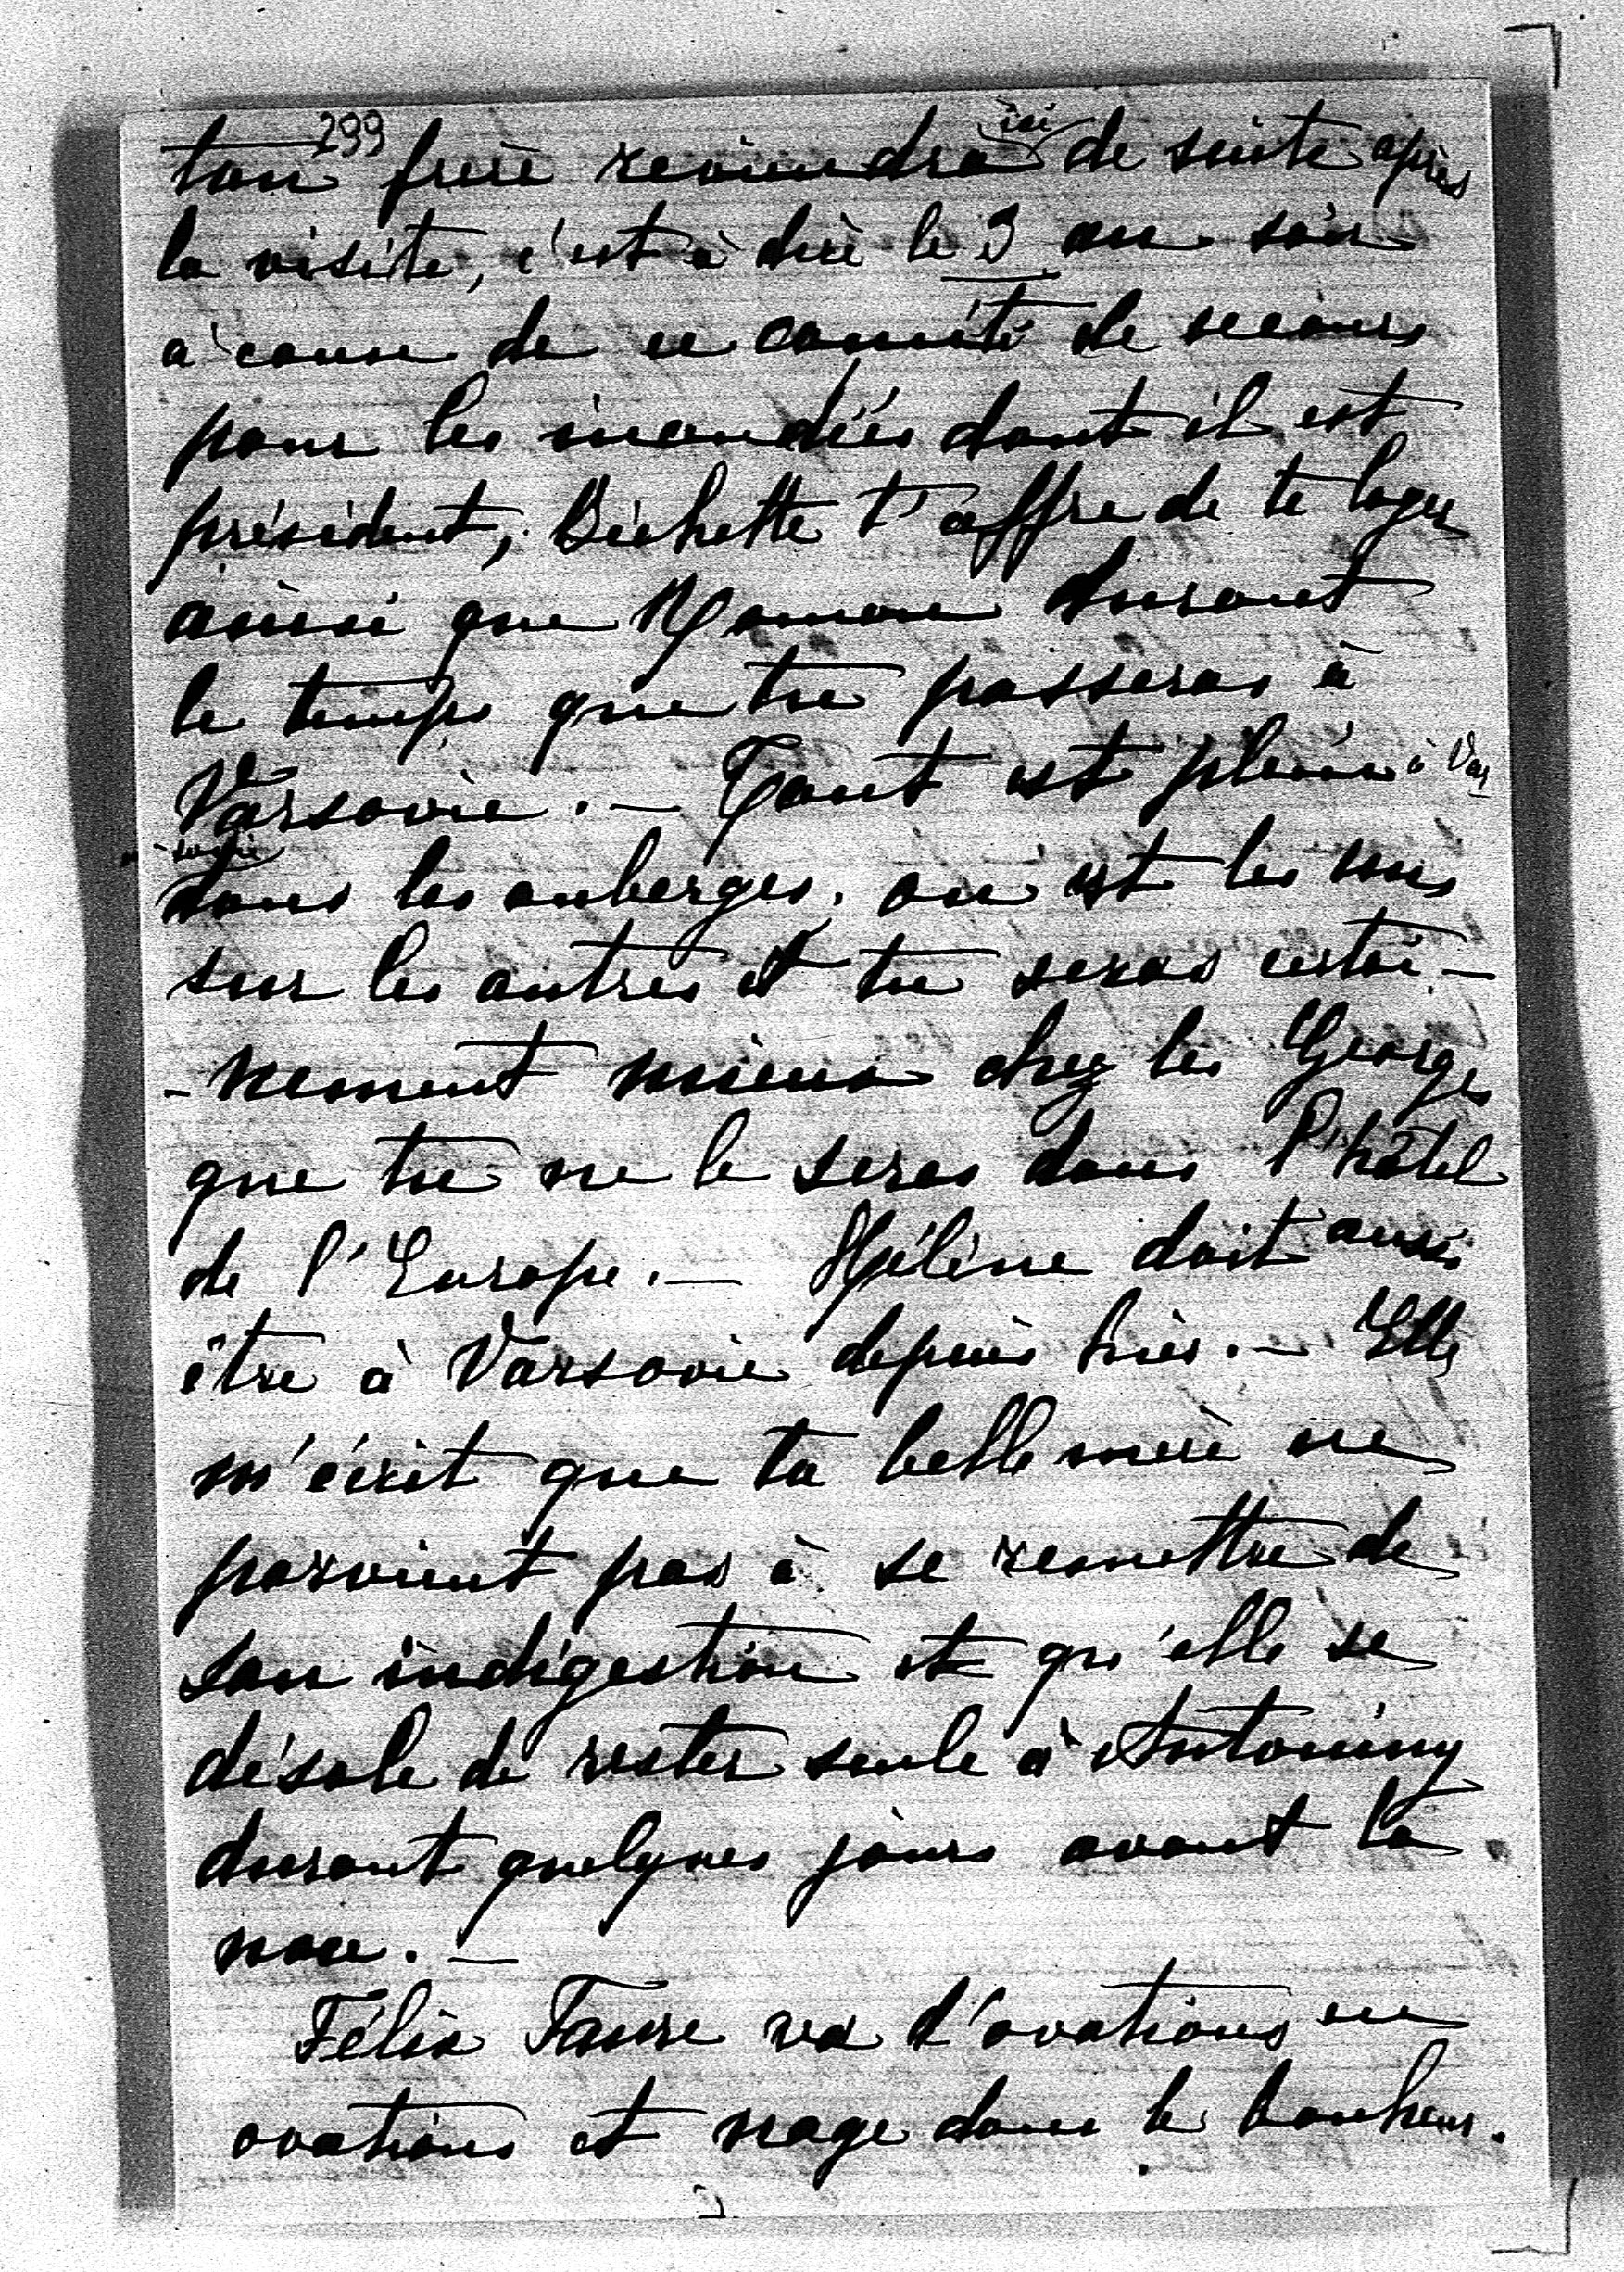 299
ton frère reviendra ici de suite après
la visite, c'est à dire le 3 au soir
à cause de ce comité de secours
pour les inondés dont il est
président, Bichette t'offre de te loger
ainsi que Maman durant
le temps que tu passeras à
Varsovie. — Tout est plein à Var
-sovie
dans les auberges, on est les uns
sur les autres et tu seras certai-
-nement mieux chez les Georges
que tu ne le seras dans l'hôtel
de l'Europe. — Hélène doit aussi
être à Varsovie depuis hier. — Elle
m'écrit que ta belle mère ne
parvient pas à se remettre de
son indigestion et qu'elle se
désole de rester seule à Antoniny
durant quelques jours avant la
noce. —
Félix Faure va d'ovations en
ovations et nage dans le bonheur.